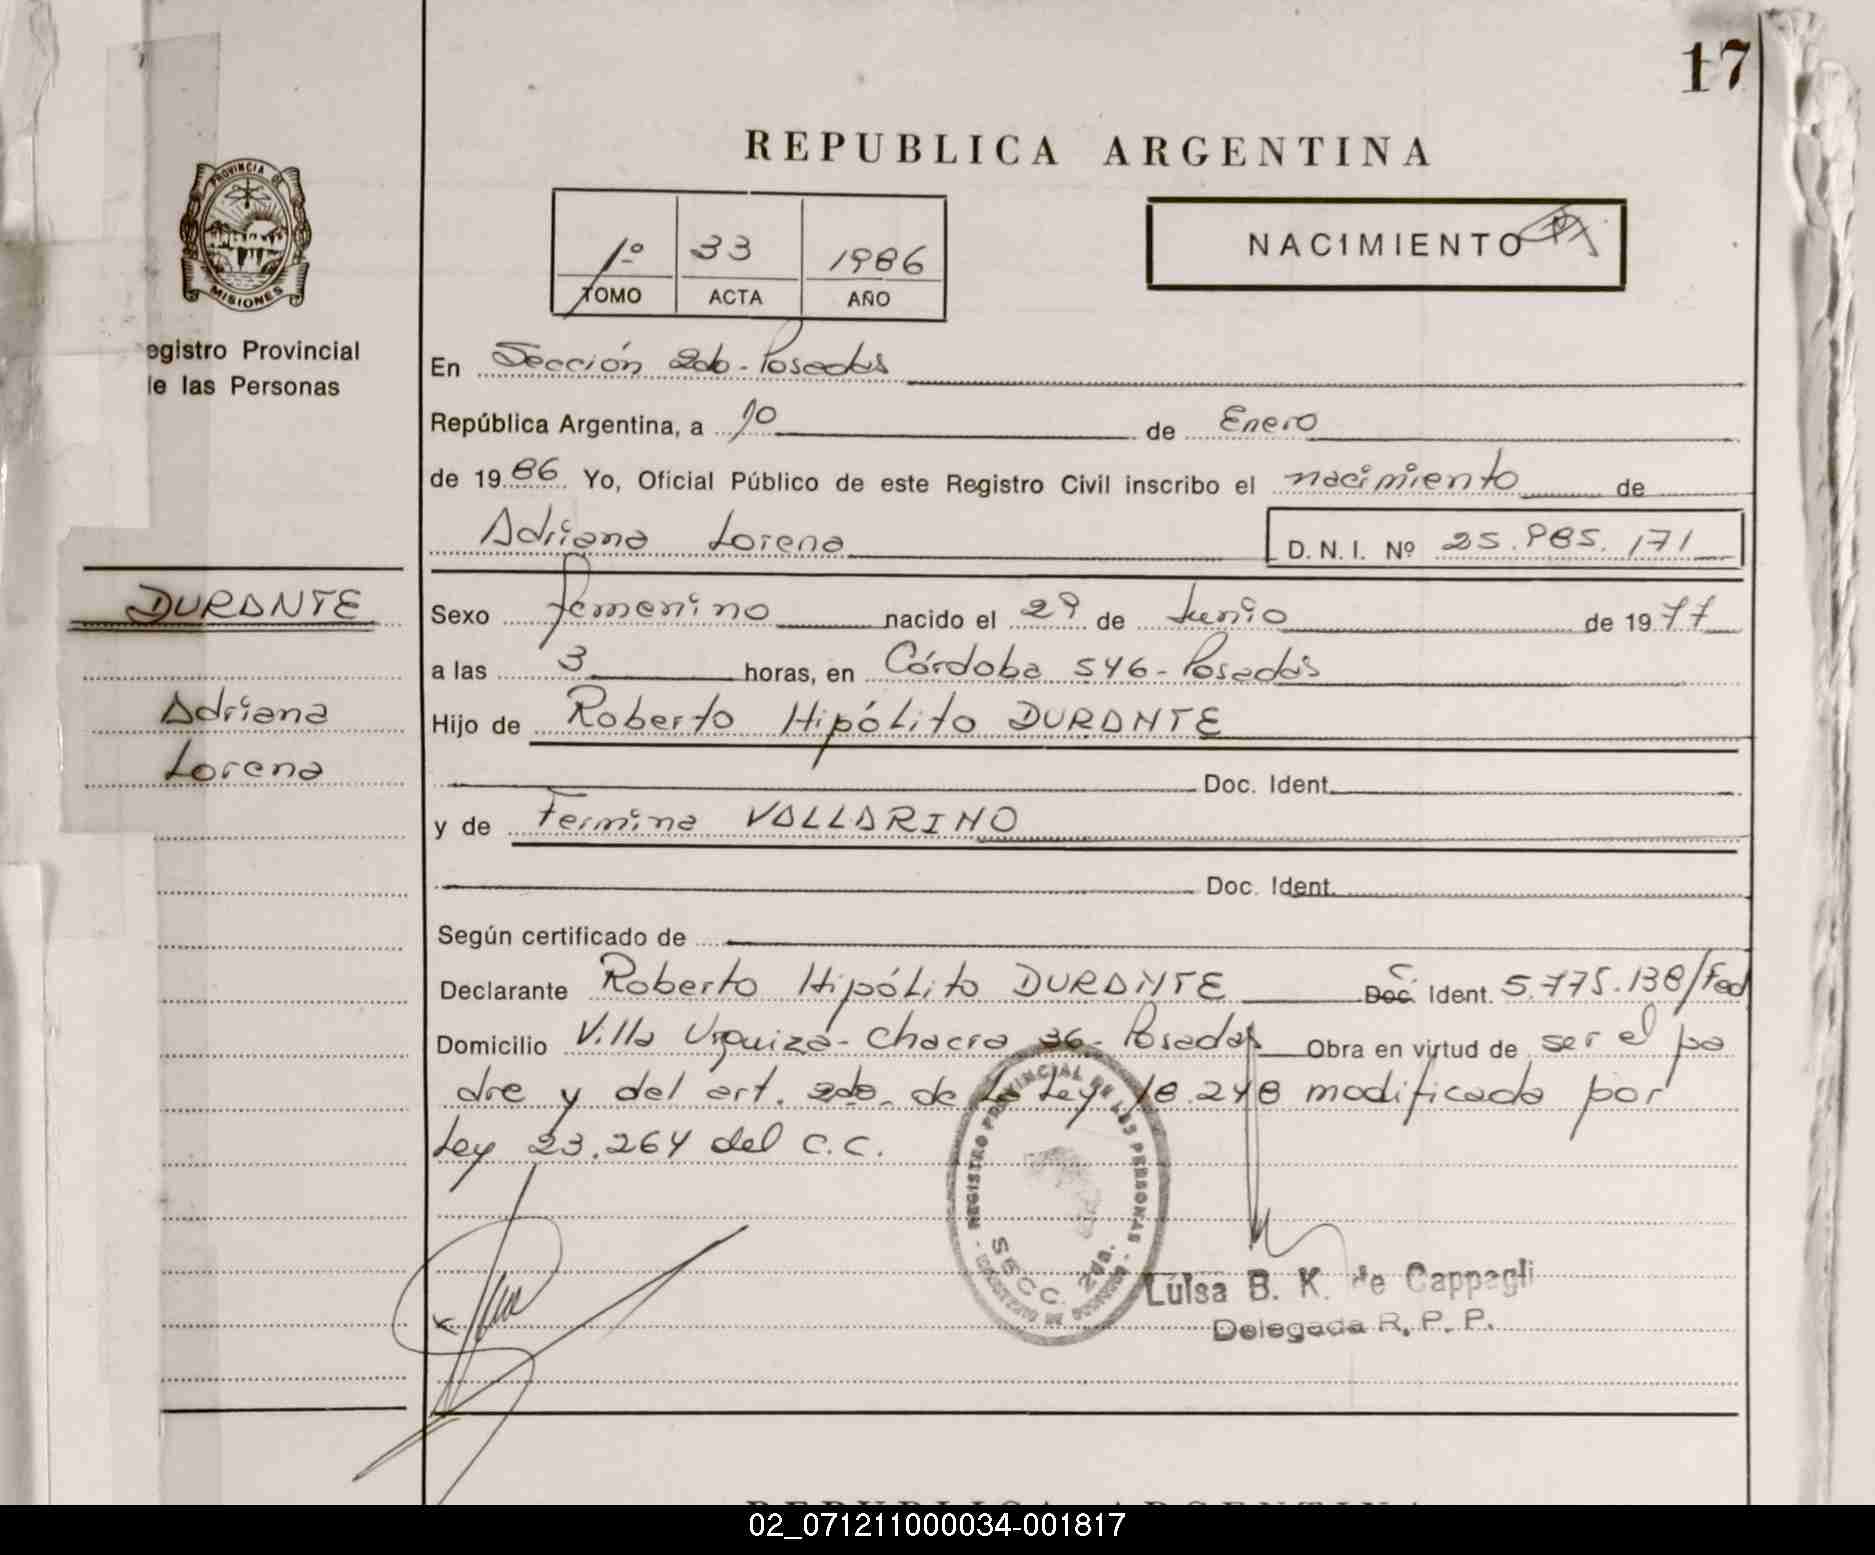 17
REPUBLICA ARGENTINA
PROVINCIA DE
MISIONES
1º 33 1986
TOMO ACTA AÑO
NACIMIENTO
egistro Provincial
e las Personas
En Sección 2da - Posadas
República Argentina, a 10 de Enero
de 19 86 Yo, Oficial Público de este Registro Civil inscribo el nacimiento de
Adriana Lorena D. N. I. Nº 25.985.171
DURANTE
Adriana
Lorena
Sexo femenino nacido el 29 de Junio de 19 77
a las 3 horas, en Córdoba 546 - Posadas
Hijo de Roberto Hipólito DURANTE
Doc. Ident.
y de Fermina VALLARINO
Doc. Ident.
Según certificado de
Declarante Roberto Hipólito DURANTE C. Doc. Ident. 5.775.138/Fed
Domicilio Villa Urquiza - Chacra 36 - Posadas Obra en virtud de ser el pa
dre y del art. 2do. de la Ley 18.248 modificada por
Ley 23.264 del C.C.
REGISTRO PROVINCIAL DE LAS PERSONAS
SECC. 2da.
Luisa B. K. de Cappagli
Delegada R. P. P.
REPUBLICA ARGENTINA
02_071211000034-001817